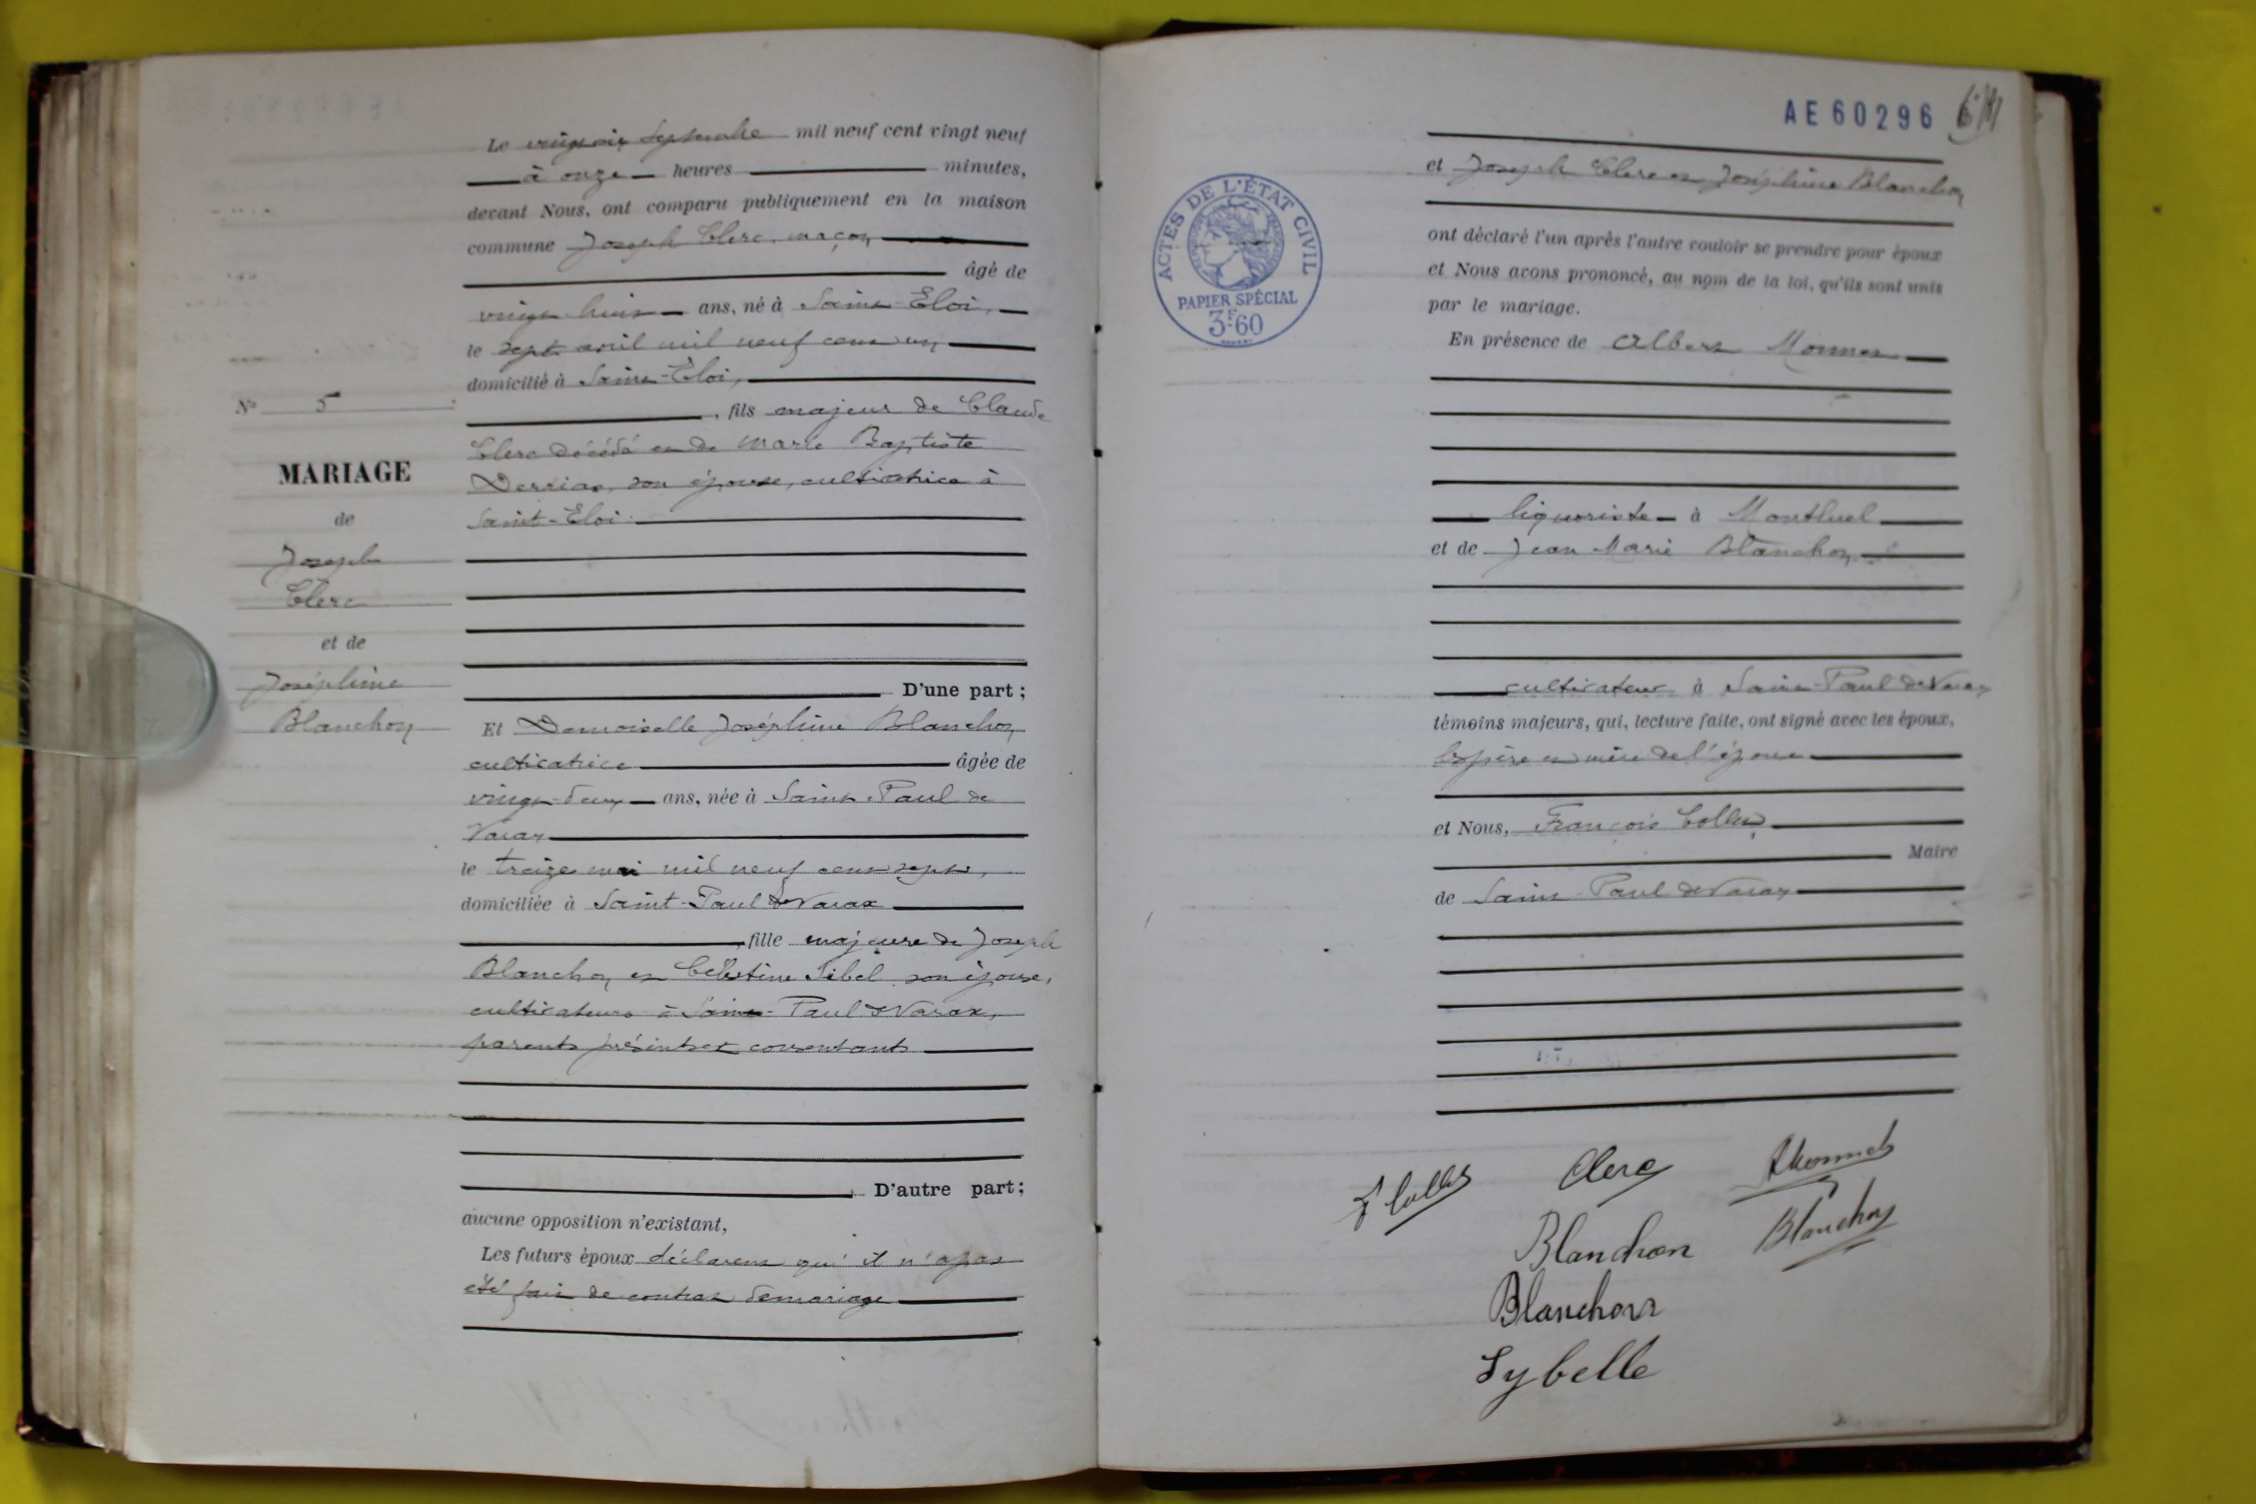 Le vingt six Septembre mil neuf cent vingt neuf
à onze heures minutes,
devant Nous, ont comparu publiquement en la maison
commune Joseph Clerc, maçon
âgé de
vingt huit ans, né à Saint-Eloi,
le sept avril mil neuf cent un,
domicilié à Saint-Eloi,
, fils majeur de Claude
Clerc décédé et de Marie Baptiste
son épouse, cultivatrice à
Saint-Eloi.
D'une part ;
Et Demoiselle Joséphine Blanchon
cultivatrice âgée de
vingt-deux ans, née à Saint-Paul de
Varax
le treize mai mil neuf cent sept,
domiciliée à Saint-Paul de Varax
, fille majeure de Joseph
Blanchon et Célestine Sibel son épouse,
cultivateurs à Saint-Paul de Varax,
parents présents et consentants
D'autre part ;
aucune opposition n'existant,
Les futurs époux déclarent qu'il n'a pas
été fait de contrat de mariage
No 5
MARIAGE
de
Joseph
Clerc
et de
Joséphine
Blanchon
AE 60296
ACTES DE L'ÉTAT CIVIL
PAPIER SPÉCIAL
3F60
et Joseph Clerc et Joséphine Blanchon
ont déclaré l'un après l'autre vouloir se prendre pour époux
et Nous avons prononcé, au nom de la loi, qu'ils sont unis
par le mariage.
En présence de Albert Monnet
liquoriste à Montluel
et de Jean Marie Blanchon
cultivateur à Saint-Paul de Varax
témoins majeurs, qui, lecture faite, ont signé avec les époux,
les père et mère de l'épouse
et Nous, François Collet
Maire
de Saint-Paul de Varax
F Collet
Clerc
AMonnet
Blanchon
Blanchon
Blanchon
Sybelle